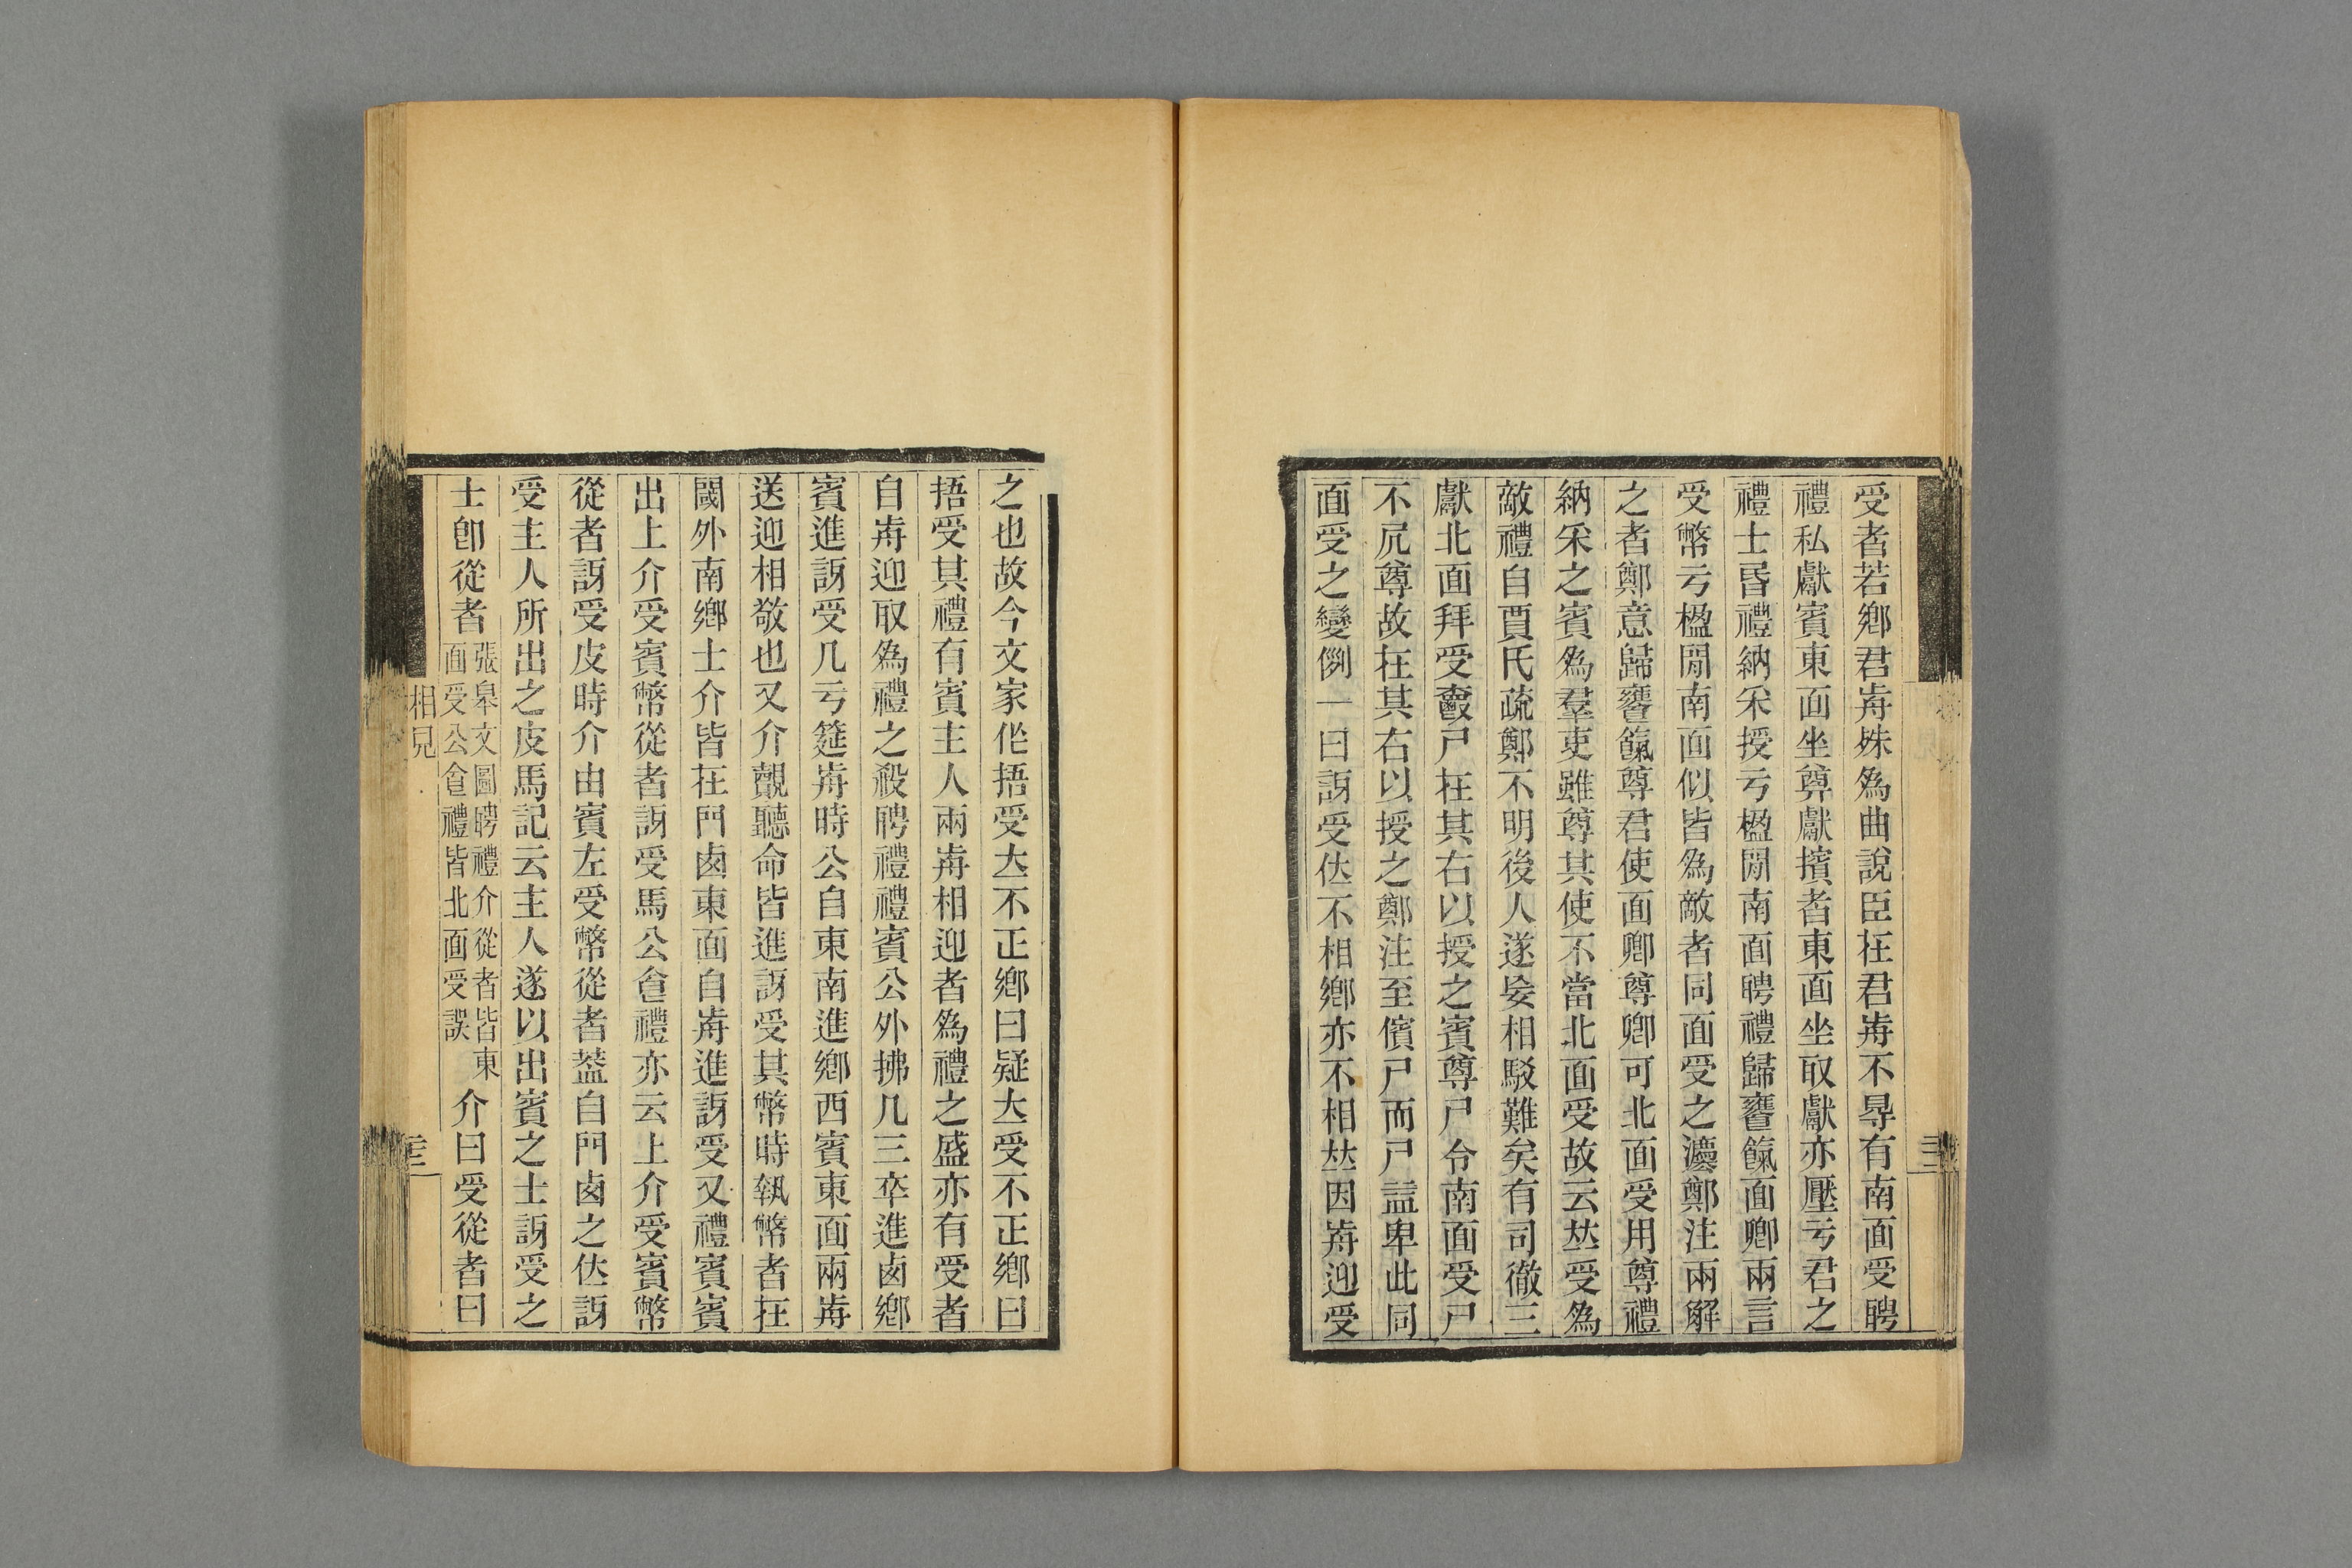 受者若鄉君歬殊爲曲說臣在君歬不㝵有南面受聘
禮私獻賓東面坐奠獻擯者東面坐取獻亦壓亏君之
禮士昏禮納采授亏楹閒南面聘禮歸饔餼面卿兩言
受幣亏楹閒南面似皆爲敵者同面受之灋鄭注兩解
之者鄭意歸饔餼尊君使面卿尊卿可北面受用尊禮
納采之賓爲羣吏雖尊其使不當北面受故云竝受爲
敵禮自賈氏疏鄭不明後人遂妄相駁難矣有司徹三
獻北面拜受爵尸在其右以授之賓尊尸令南面受尸
不凥尊故在其右以授之鄭注至儐尸而尸益卑此同
面受之變例一曰訝受㚲不相鄉亦不相竝因歬迎受
之也故今文家㐵捂受夳不正鄉曰疑夳受不正鄉曰
捂受其禮有賓主人兩歬相迎者爲禮之盛亦有受者
自歬迎取爲禮之殺聘禮禮賓公外拂几三卒進卤鄉
賓進訝受几亏筵歬時公自東南進鄉西賓東面兩歬
送迎相敬也又介覿聽命皆進訝受其幣時執幣者在
闑外南鄉士介皆在門卤東面自歬進訝受又禮賓賓
出上介受賓幣從者訝受馬公㑹禮亦云上介受賓幣
從者訝受皮時介由賓左受幣從者葢自門卤之㚲訝
受主人所出之皮馬記云主人遂以出賓之士訝受之
士卽從者
張皋文圖聘禮介從者皆東
面受公㑹禮皆北面受誤
介曰受從者曰
相見